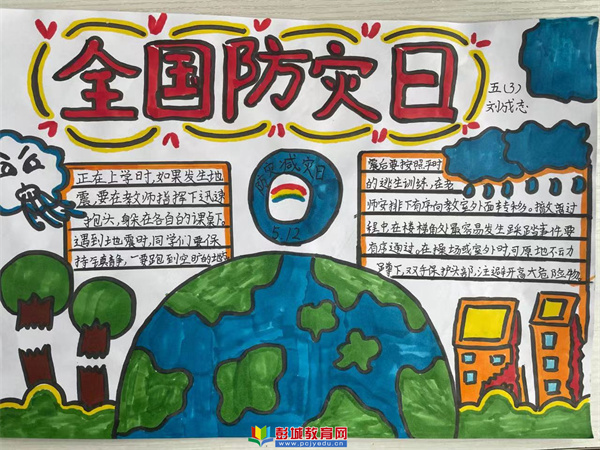 全国防灾日
五(3)
刘成志
正在上学时,如果发生地
震,要在教师指挥下迅速
抱头,躲在各自的课桌下
遇到地震时,同学们要保
持镇静,一要跑到空旷的地
防灾减灾日
5.12
震后要按照平时
的逃生训练,在老
师安排下有序向教室外面转移。撤离过
程中在楼梯角处最容易发生踩踏事件要
有序通过。在操场或室外时,可原地不动
蹲下,双手保护头部,注避开高大危险物
彭城教育网
www.pcjyedu.cn